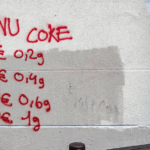 NU COKE
€ 0,2g
€ 0,4g
€ 0,6g
€ 1g